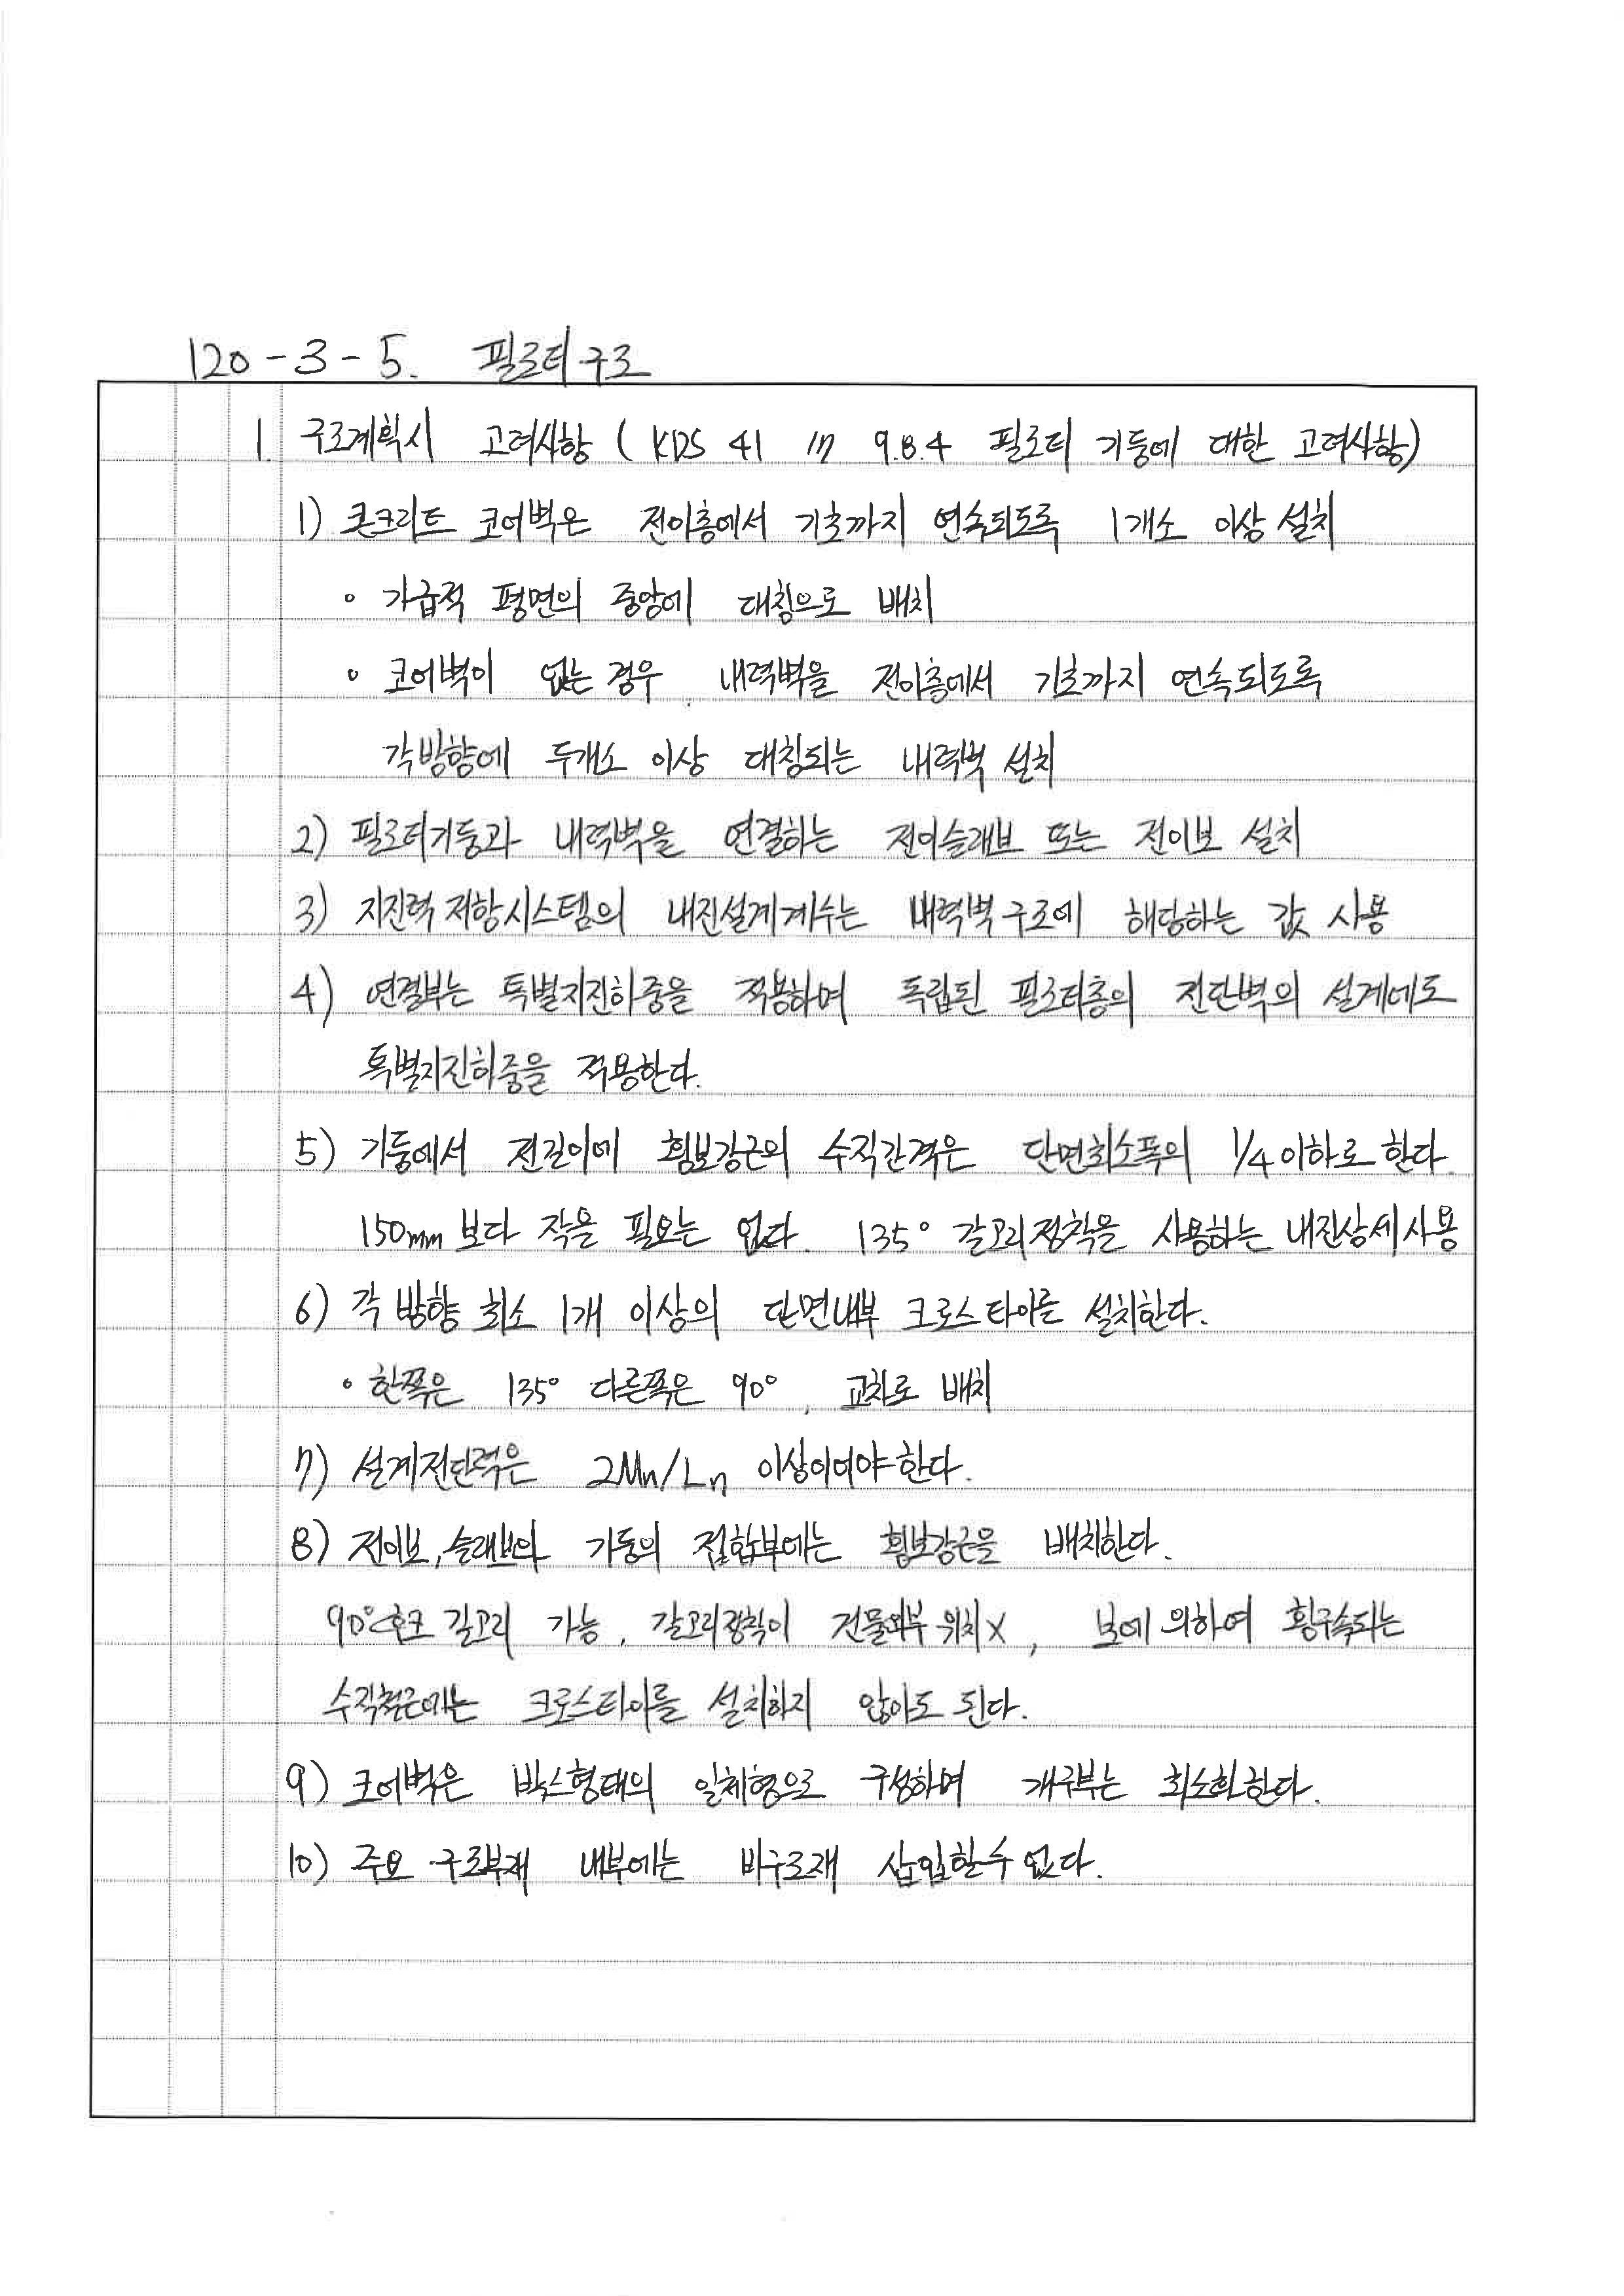 120-3-5. 필로티구조
1. 구조계획시 고려사항 (KDS 41 17 9.8.4 필로티 기둥에 대한 고려사항)
1) 콘크리트 코어벽은 전이층에서 기초까지 연속되도록 1개소 이상 설치
◦ 가급적 평면의 중앙에 대칭으로 배치
◦ 코어벽이 없는 경우, 내력벽을 전이층에서 기초까지 연속되도록
각방향에 두개소 이상 대칭되는 내력벽 설치
2) 필로티기둥과 내력벽을 연결하는 전이슬래브 또는 전이보 설치
3) 지진력 저항시스템의 내진설계계수는 내력벽구조에 해당하는 값 사용
4) 연결부는 특별지진하중을 적용하며 독립된 필로티층의 전단벽의 설계에도
특별지진하중을 적용한다.
5) 기둥에서 전길이에 횡보강근의 수직간격은 단면최소폭의 1/4 이하로 한다.
150mm 보다 작을 필요는 없다. 135° 갈고리정착을 사용하는 내진상세 사용
6) 각 방향 최소 1개 이상의 단면내부 크로스타이를 설치한다.
◦ 한쪽은 135° 다른쪽은 90°, 교차로 배치
7) 설계전단력은 2Mn/Ln 이상이어야한다.
8) 전이보, 슬래브와 기둥의 접합부에는 횡보강근을 배치한다.
90° 갈고리 가능, 갈고리정착이 건물외부 위치X, 보에 의하여 횡구속되는
수직철근에는 크로스타이를 설치하지 않아도 된다.
9) 코어벽은 박스형태의 일체형으로 구성하며 개구부는 최소화한다.
10) 주요 구조부재 내부에는 비구조재 삽입할수 없다.